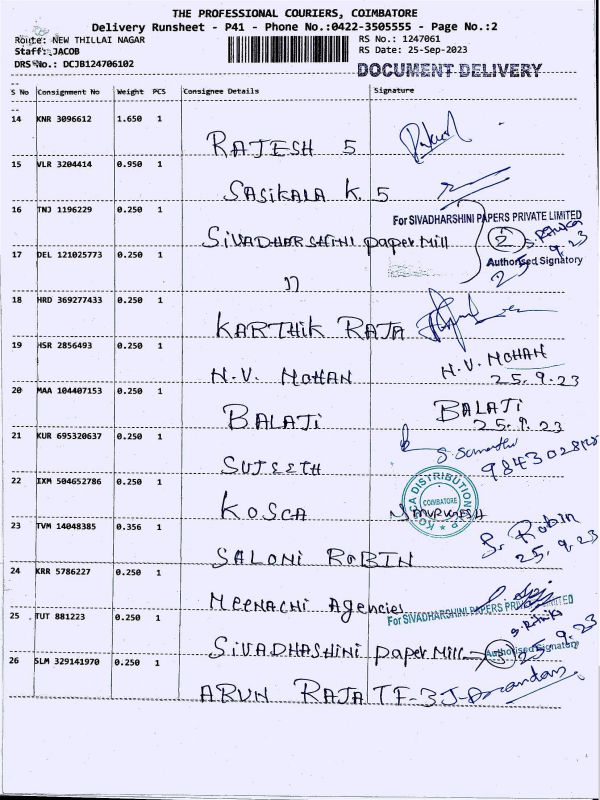 THE PROFESSIONAL COURIERS, COIMBATORE
Delivery Runsheet - P41 - Phone No.:0422-3505555 - Page No.:2
Route: NEW THILLAI NAGAR RS No.: 1247061
Staff: JACOB RS Date: 25-Sep-2023
DRS No.: DCJB124706102 DOCUMENT DELIVERY
S No Consignment No Weight PCS Consignee Details Signature
14 KNR 3096612 1.650 1
RAJESH S
15 VLR 3204414 0.950 1
SASIKALA K. S
16 TNJ 1196229 0.250 1
For SIVADHARSHINI PAPERS PRIVATE LIMITED
SIVADHARSHINI paper Mill 2
17 DEL 121025773 0.250 1 Authorised Signatory
25.9.23
"
18 HRD 369277433 0.250 1
KARTHIK RAJA
19 HSR 2856493 0.250 1
N.V. MOHAN N.V. MOHAN
25.9.23
20 MAA 104407153 0.250 1
BALAJI BALAJI
25.9.23
21 KUR 695320637 0.250 1
SUJEETH
22 IXM 504652786 0.250 1
KOSCA DISTRIBUTION
COIMBATORE
KOSCA
23 TVM 14048385 0.356 1
S. Robin
25.9.23
SALONI ROBIN
24 KRR 5786227 0.250 1
MEENACHI Agencies
For SIVADHARSHINI PAPERS PRIVATE LIMITED
25 TUT 881223 0.250 1
SIVADHASHINI paper Mill
Authorised Signatory
25.9.23
26 SLM 329141970 0.250 1
ARUN RAJA TF-3